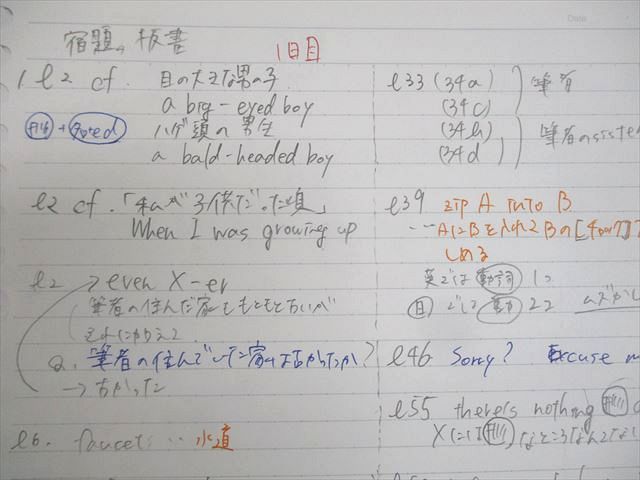 Date
宿題、板書
1日目
1. l2 cf. 目の大きな男の子
a big-eyed boy
形 + 名ed ハゲ頭の男生
a bald-headed boy
l2 cf.「私が子供だった頃」
When I was growing up
l2 → even X-er
筆者の住んだ家ももともと古いが
Q. 筆者の住んでいた家は古かったか?
→ 古かった
l6. faucet … 水道
l33 (34a)
(34c) 筆者
(34b)
(34d 筆者のsiste
l39 A into B
…AにBを入れてBの
しめる
英では 動詞 1つ
日 では 動 2つ
l46 Sorry? Excuse m
l55 there's nothing 形
Xには 形 なところなんてな